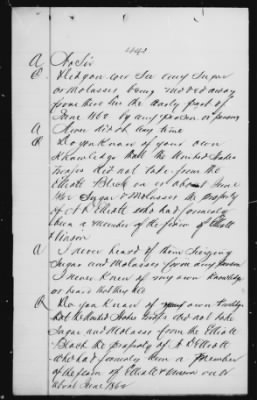 A No Sir
Q. Did you ever see any Sugar
or Molasses being moved away
from there in the early part of
June 1862 by any person or persons
A Never did at any time
Q Do you know of your own
Knowledge that the United States
troops did not take from the
Elliott Block on or about June
1862 Sugar & Molasses the property
of A D Elliott who had formerly
been a member of the firm of Elliott
& Vinson
A I never heard of them seizing
Sugar and Molasses from any person
I never knew of my own Knowledge
or heard that they did
Q Do you know of your own Knowledge
that the United States troops did not take
Sugar and Molasses from the Elliott
Block the property of A D Elliott
who had formerly been a member
of the firm of Elliott & Vinson on or
about June 1862